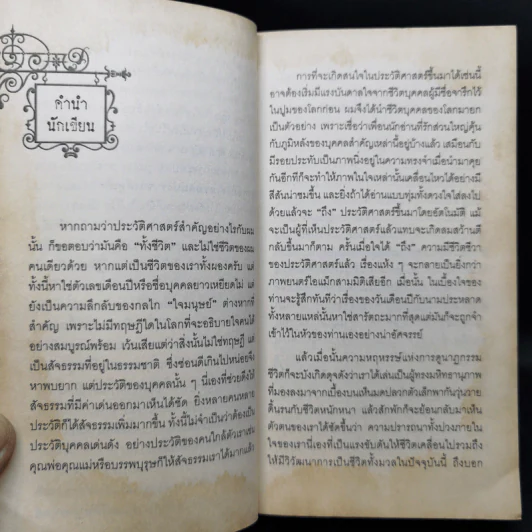 คำนำ
นักเขียน
หากถามว่าประวัติศาสตร์สำคัญอย่างไรกับผม
นั้น ก็ขอตอบว่ามันคือ “ทั้งชีวิต” และไม่ใช่ชีวิตของผม
คนเดียวด้วย หากแต่เป็นชีวิตของเราทั้งผองครับ แต่
ทั้งนี้หาใช่ตัวเลขเดือนปีหรือชื่อบุคคลยาวเหยียดไม่ แต่
ยังเป็นความลึกลับของกลไก “ใจมนุษย์” ต่างหากที่
สำคัญ เพราะไม่มีทฤษฎีใดในโลกที่จะอธิบายใจคนได้
อย่างสมบูรณ์พร้อม เว้นเสียแต่ว่าสิ่งนั้นไม่ใช่ทฤษฎี แต่
เป็นสัจธรรมที่อยู่ในธรรมชาติ ซึ่งซ่อนดีเกินไปหน่อยจึง
หาพบยาก แต่ประวัติของบุคคลนั้น ๆ นี้เองที่ช่วยดึงให้
สัจธรรมที่มีค่าเด่นออกมาเห็นได้ชัด ยิ่งหลายคนหลาย
ประวัติก็ได้สัจธรรมเพิ่มมากขึ้น ทั้งนี้ไม่จำเป็นว่าต้องเป็น
ประวัติบุคคลเด่นดัง อย่างประวัติของคนใกล้ตัวเราเช่น
คุณพ่อคุณแม่หรือบรรพบุรุษก็ให้สัจธรรมเราได้มากแล้ว
การที่จะเกิดสนใจในประวัติศาสตร์ขึ้นมาได้เช่นนี้
อาจต้องเริ่มมีแรงบันดาลใจจากชีวิตบุคคลผู้มีชื่อจารึกไว้
ในปูมของโลกก่อน ผมจึงได้นำชีวิตบุคคลของโลกมาอก
เป็นตัวอย่าง เพราะเชื่อว่าเพื่อนนักอ่านที่รักส่วนใหญ่คุ้น
กับภูมิหลังของบุคคลสำคัญเหล่านี้อยู่บ้างแล้ว เสมือนกับ
มีรอยประทับเป็นภาพนิ่งอยู่ในความทรงจำเมื่อนำมาคุย
กันอีกทีก็จะทำให้ภาพในใจเหล่านั้นเคลื่อนไหวได้อย่างมี
สีสันน่าชมขึ้น และยิ่งถ้าได้อ่านแบบทุ่มทั้งดวงใจใส่ลงไป
ด้วยแล้วจะ “ถึง” ประวัติศาสตร์ขึ้นมาโดยอัตโนมัติ แม้
จะเป็นผู้ที่เห็นประวัติศาสตร์แล้วแทบจะเกิดลมสว้านตี
กลับขึ้นมาก็ตาม ครั้นเมื่อใจได้ “ถึง” ความมีชีวิตชีวา
ของประวัติศาสตร์แล้ว เรื่องแห้ง ๆ จะกลายเป็นยิ่งกว่า
ภาพยนตร์ไอแม็กสามมิติเสียอีก เมื่อนั้น ในเบื้องใจของ
ท่านจะรู้สึกทันทีว่าเรื่องของวันเดือนปีกับนามประหลาด
ทั้งหลายแหล่นั้นหาใช่สารัตถะมากที่สุดแต่มันก็จะถูกจำ
เข้าไว้ในหัวของท่านเองอย่างน่าอัศจรรย์
แล้วเมื่อนั้นความมหรรษ์แห่งการดูนาฏกรรม
ชีวิตก็จะบังเกิดดุจดังว่าเราได้เล่นเป็นผู้ทรงมหิทธานุภาพ
ที่มองลงมาจากเบื้องบนเห็นมดปลวกตัวเล็กพากันวุ่นวาย
ดิ้นรนกับชีวิตหนักหนา แล้วสักพักก็จะย้อนกลับมาเห็น
ตัวตนของเราได้ชัดขึ้นว่า ความปรารถนาทั้งปวงภายใน
ใจของเรานี่เองที่เป็นแรงขับดันให้ชีวิตเคลื่อนไปรวมถึง
ให้มีวิวัฒนาการเป็นชีวิตทั้งมวลในปัจจุบันนี้ ถึงบอก